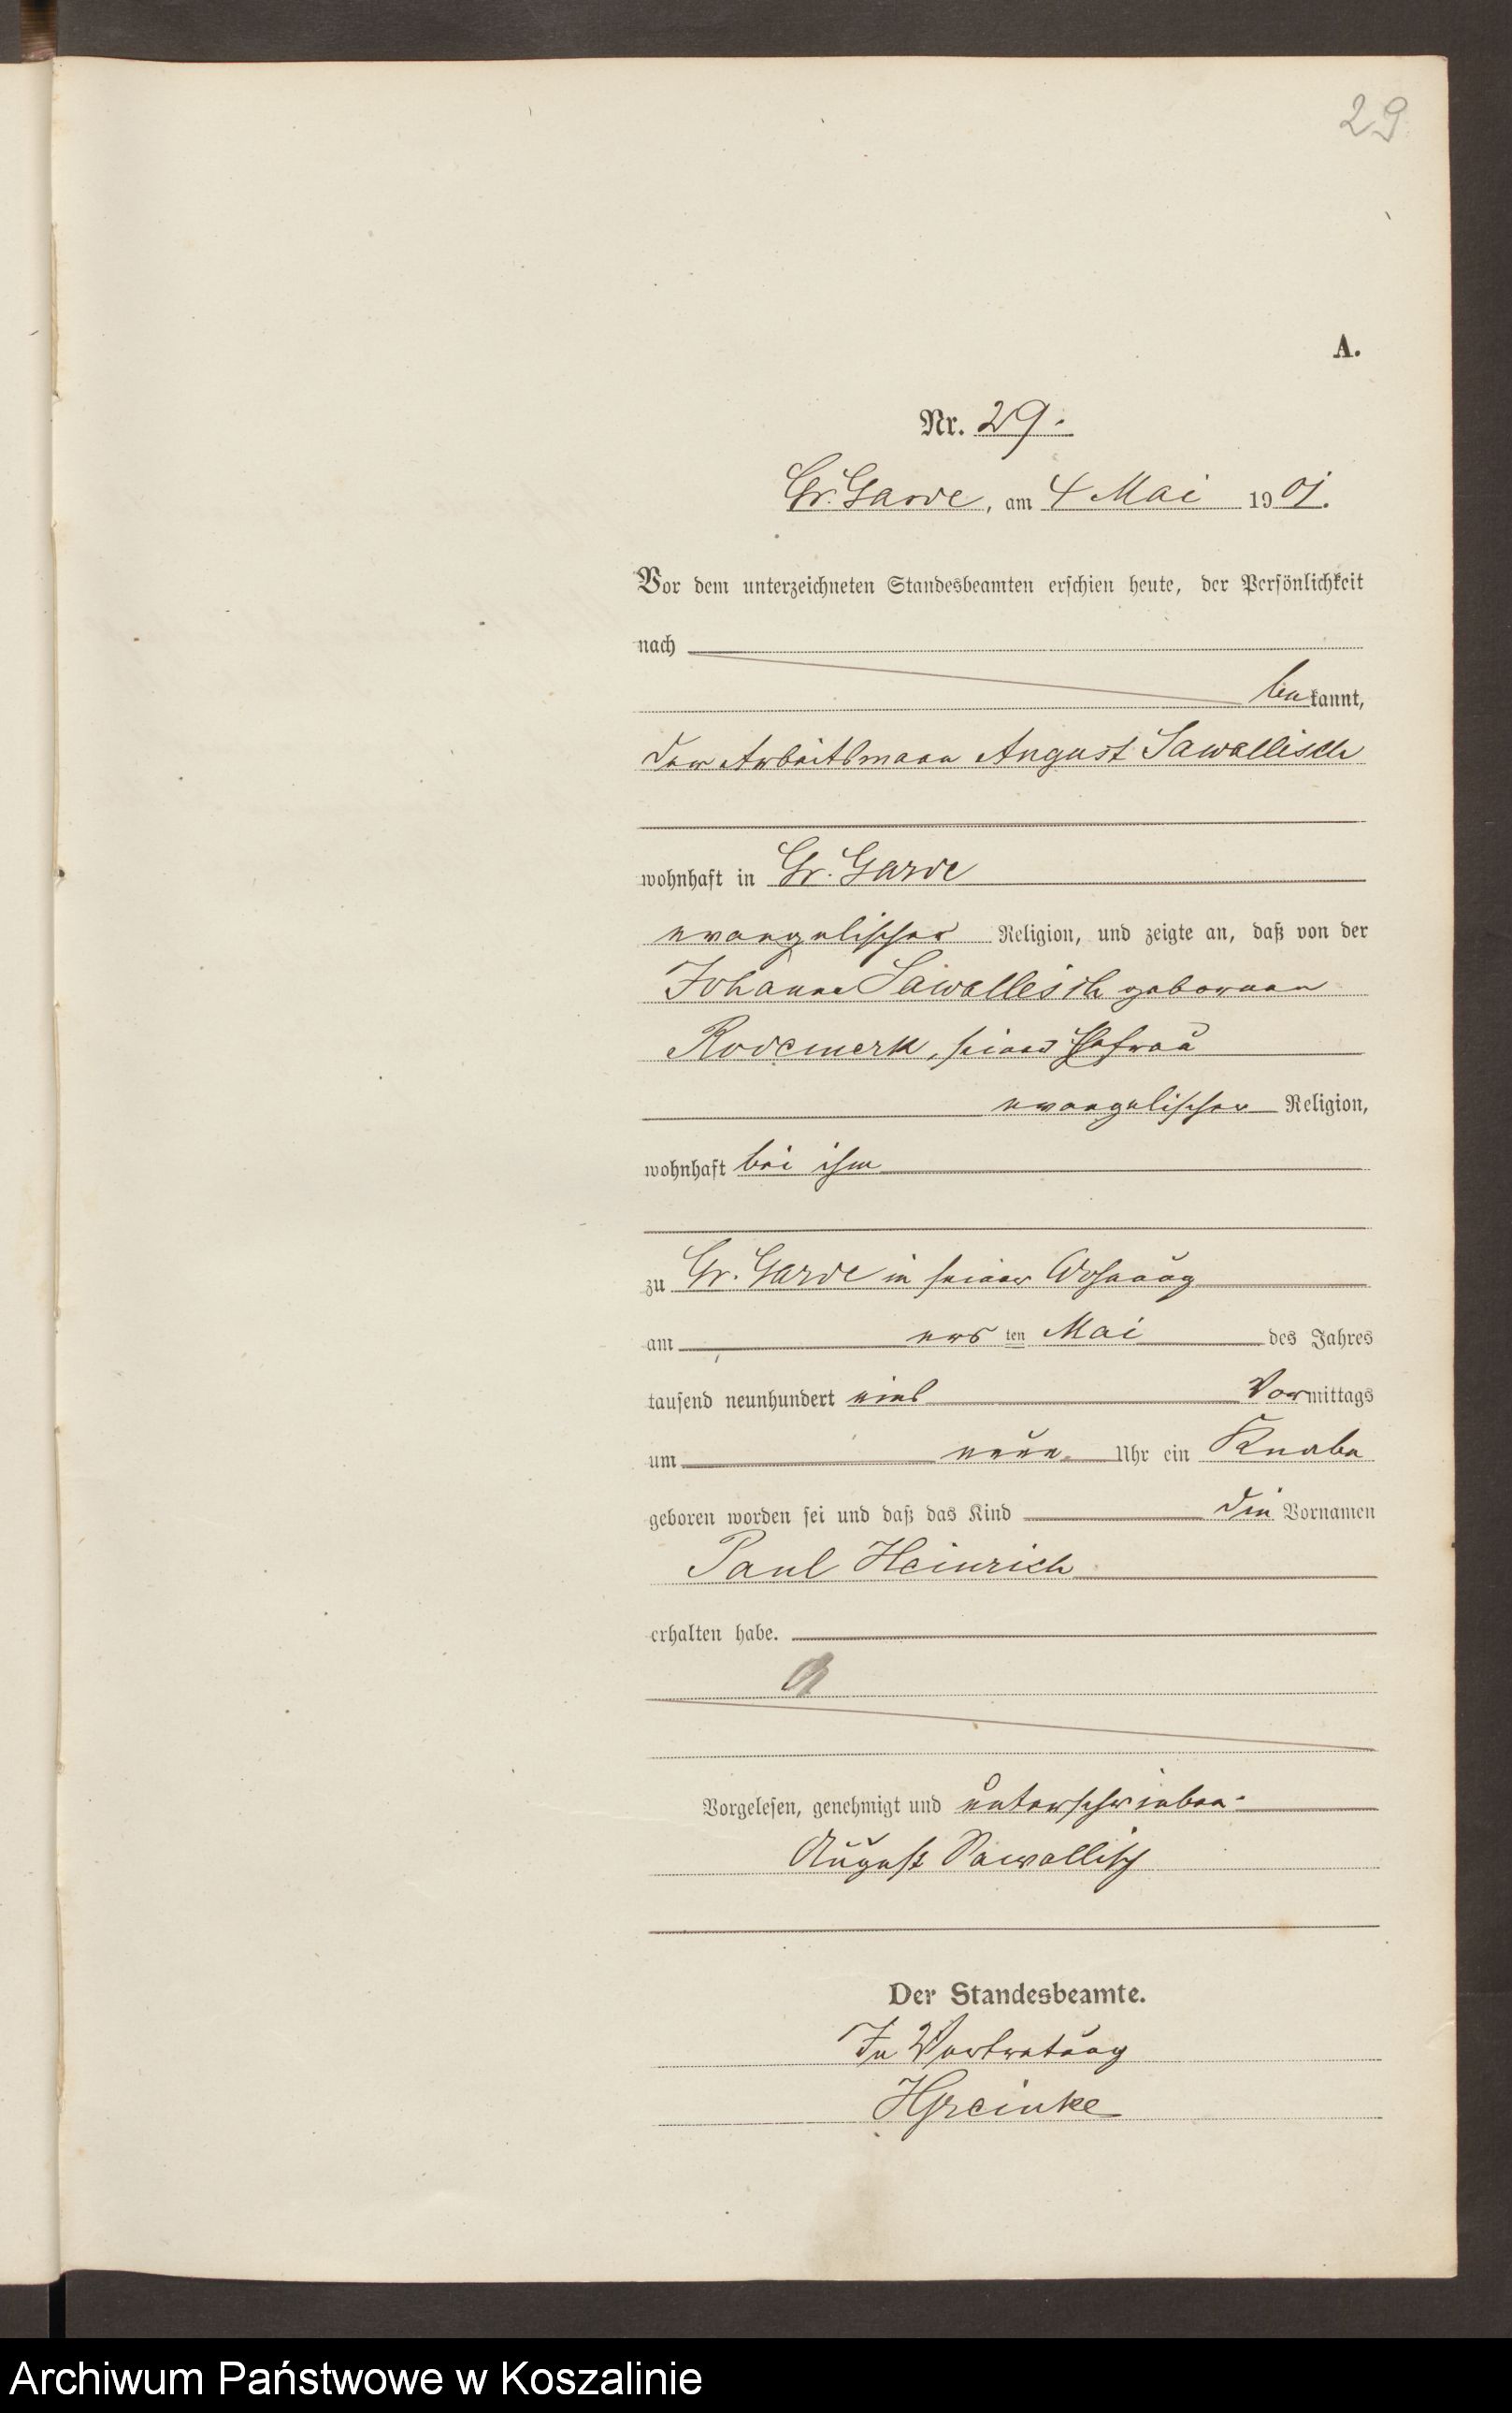 29
A.
Nr. 29.
Gr. Garde, am 4 Mai 1901.
Vor dem unterzeichneten Standesbeamten erschien heute, der Persönlichkeit
nach
bekannt,
der Arbeitsmann August Sawallisch
wohnhaft in Gr. Garde
evangelischer Religion, und zeigte an, daß von der
Johanne Sawallisch geborenen
Rodemerk, seiner Ehefrau
evangelischer Religion,
wohnhaft bei ihm
zu Gr. Garde in seiner Wohnung
am ersten Mai des Jahres
tausend neunhundert eins Vormittags
um neun Uhr ein Knabe
geboren worden sei und daß das Kind die Vornamen
Paul Heinrich
erhalten habe.
Vorgelesen, genehmigt und unterschrieben.
August Sawallisch
Der Standesbeamte.
In Vertretung
Archiwum Państwowe w Koszalinie